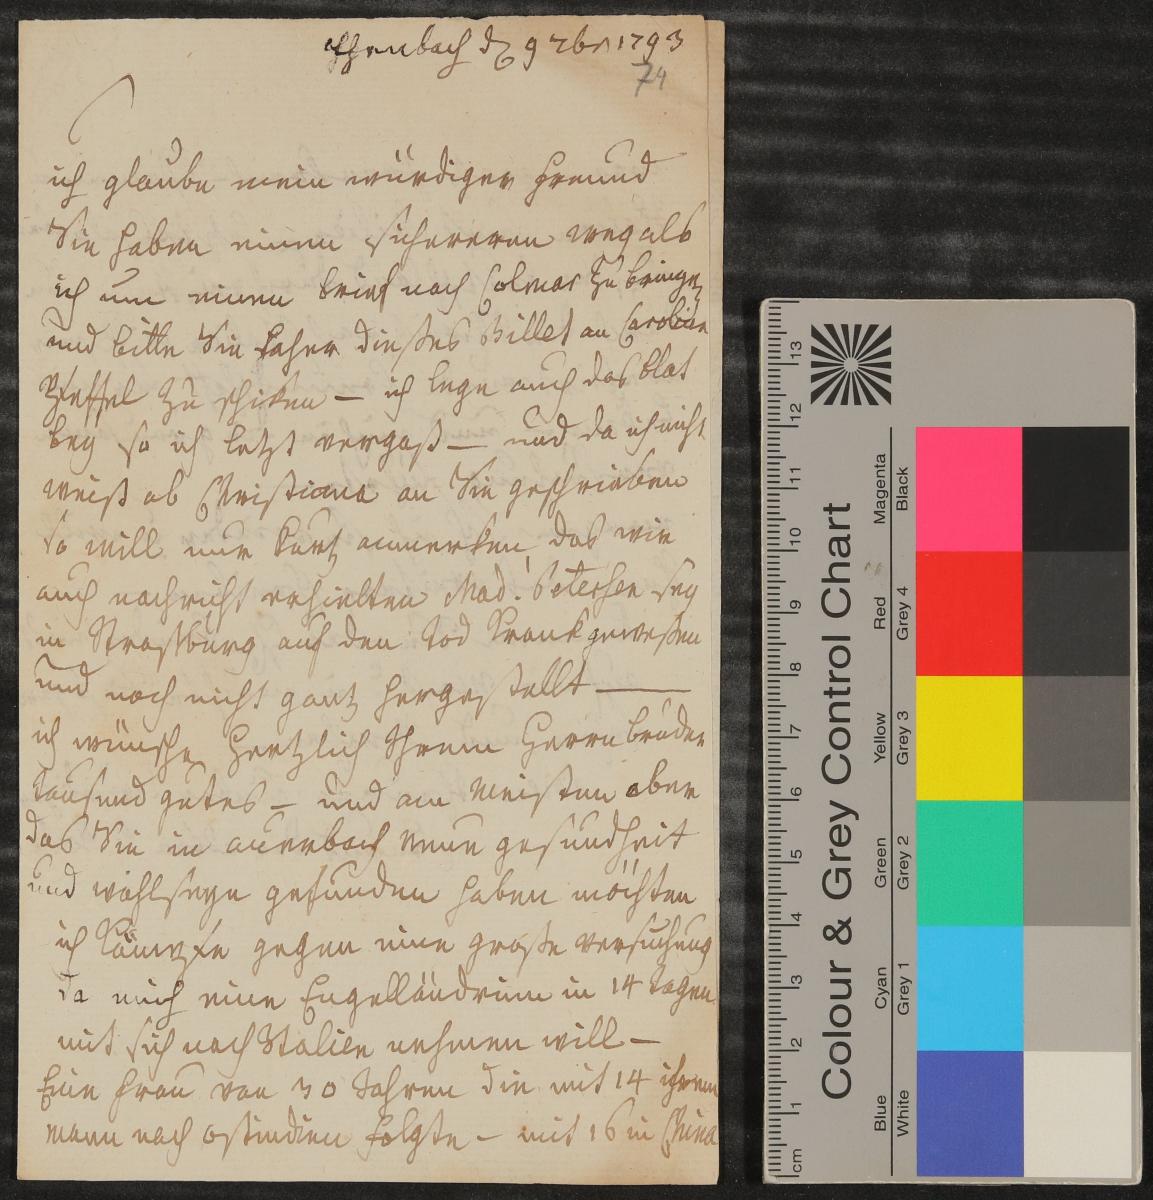 offenbach d 9 7br 1793
74
ich glaube mein würdiger Freund
Sie haben einen sichereren weg als
ich um einen brief nach Colmar zu bringen
und bitte Sie daher dießes Billet an Caroline
Pfeffel zu schiken — ich lege auch das blat
bey so ich letzt vergaß — und da ich nicht
weiß ob Christiane an Sie geschrieben
so will nur kurtz anmerken das wir
auch nachricht erhielten Mad. Petersen sey
in Straßburg auf den tod krank geweßen
und noch nicht gantz hergestellt —
ich wünsche hertzlich Ihrem Herrn bruder
tausend gutes — und am meisten aber
das Sie in auerbach neue gesundheit
und wohlseyn gefunden haben möchten
ich kämpfe gegen eine große versuchung
da mich eine Engelländrinn in 14 tagen
mit sich nach Italien nehmen will —
Eine frau von 30 Jahren die mit 14 ihrem
mann nach ostindien folgte — mit 16 in China
Colour & Grey Control Chart
Blue Cyan Green Yellow Red Magenta
White Grey 1 Grey 2 Grey 3 Grey 4 Black
cm 1 2 3 4 5 6 7 8 9 10 11 12 13